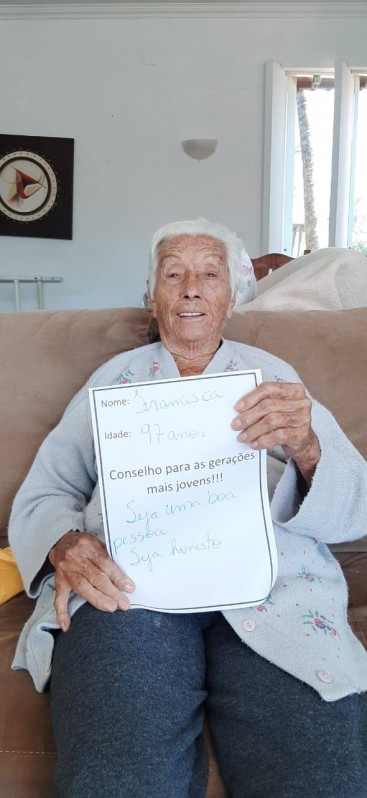 Nome: Francisca
Idade: 97 anos
Conselho para as gerações
mais jovens!!!
Seja uma boa
pessoa
Seja honesto